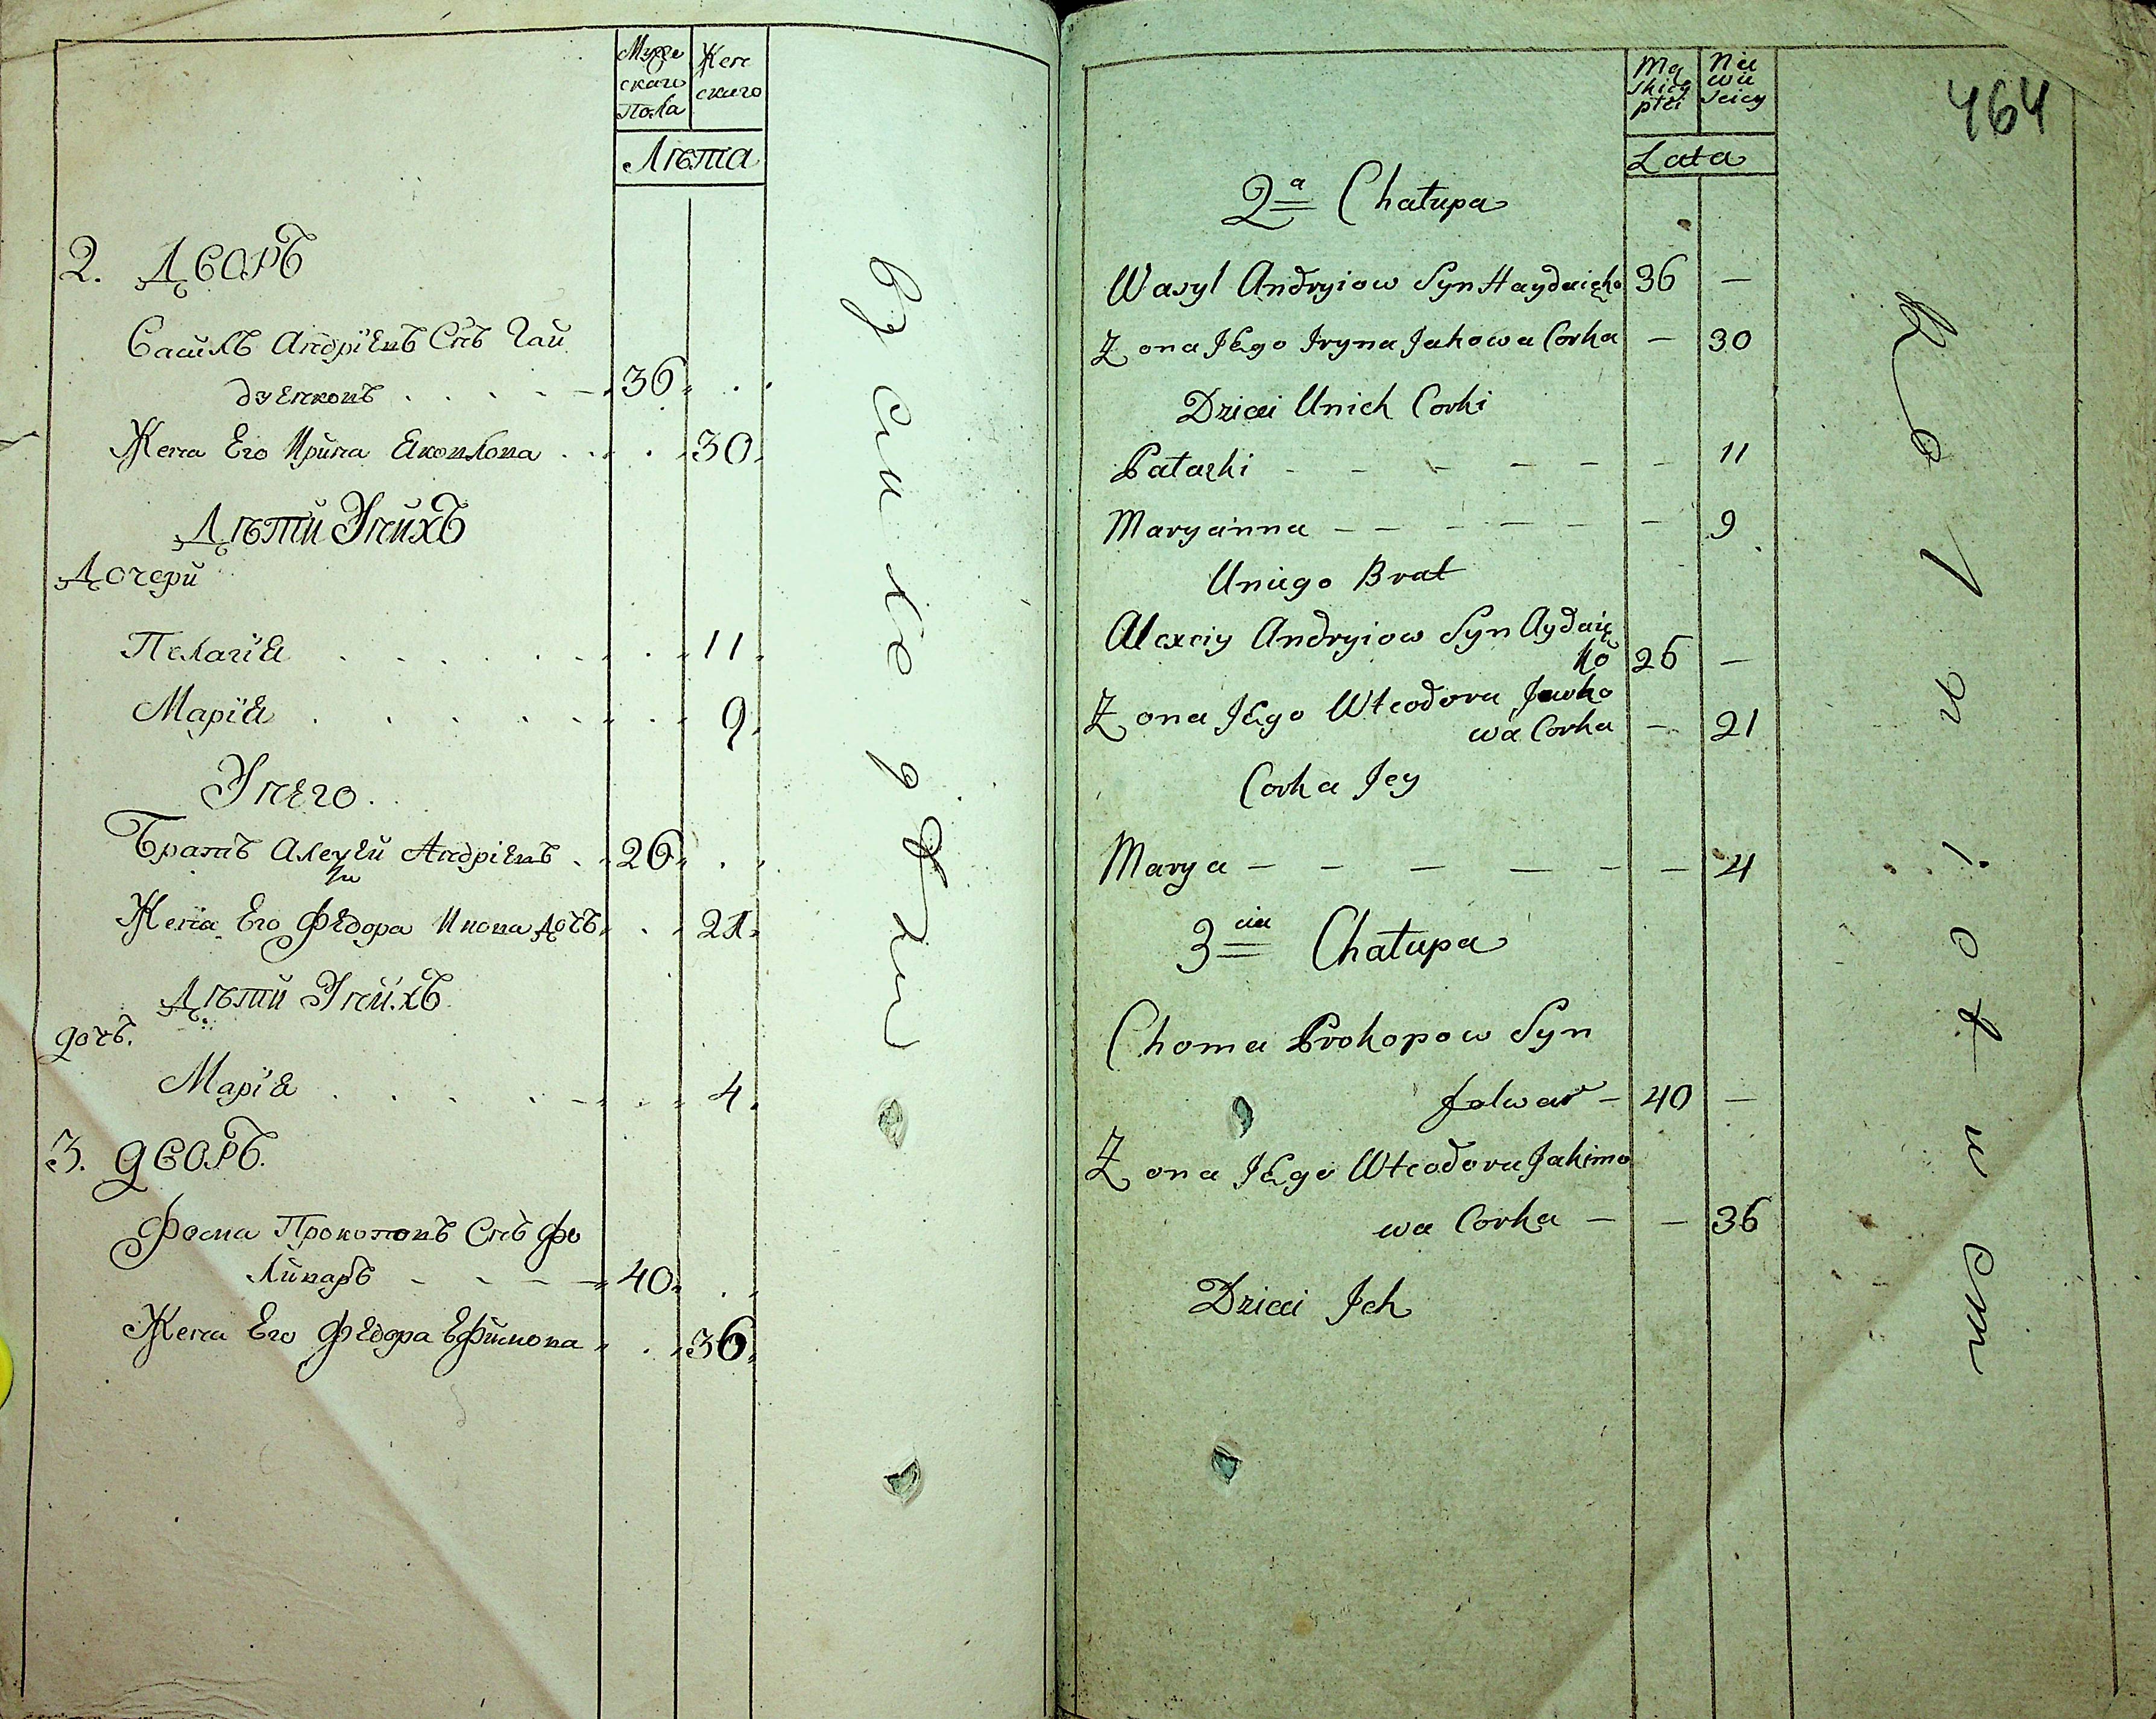 Муже
скаго
Пола
Жен
скаго
Лѣта
2. Дворъ
Василь Андрїевъ Снъ Гай
дзенковъ 36
Жена Его Ирина Яковлова 30
Дѣтй Унйхъ
Дочерй
Пелагія 11
Марія 9
Унего
Братъ Алеѯей Андріевъ 26
Жена Его Федора Ивова дочь 21
Дѣтй Унйхъ
дочъ.
Марія 4
3. дворъ.
Фома Прокоповъ Снъ Фо
льваръ 40
Жена Его Федора Ефимова 36
464
Mę
skiey
płci
Nie
wie
sciey
Lata
2a Chałupa
Wasyl Andryiow Syn Haydzięko 36 —
Żona Jego Iryna Jakowa Corka — 30
Dzieci Unich Corki
Pałazki — 11
Maryanna — 9
Uniego Brat
Alexiy Andryiow Syn Aydzię
ko 26 —
Żona Jego Wteodora Jwko
wa Corka — 21
Corka Jey
Marya — 4
3cia Chałupa
Choma Prokopow Syn
Folwar — 40 —
Żona Jego Wteodora Jakimo
wa Corka — 36
Dzieci Ich